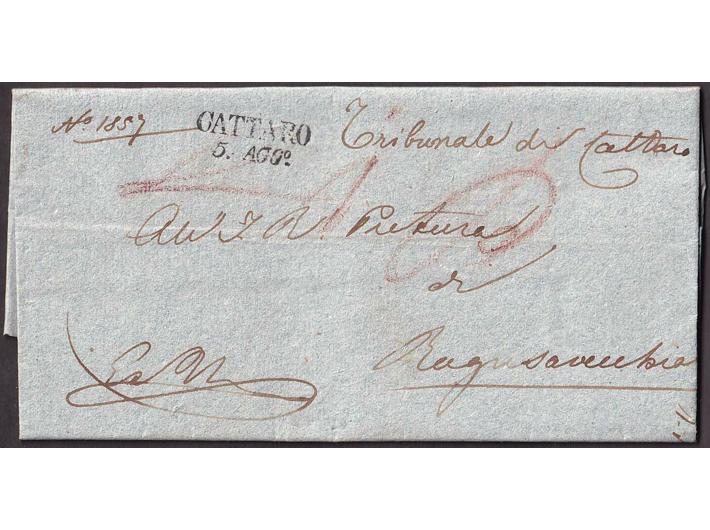 No 1857
CATTARO
5. AGGO.
Tribunale di Cattaro
All' I. R. Pretura
di
Ragusavecchia